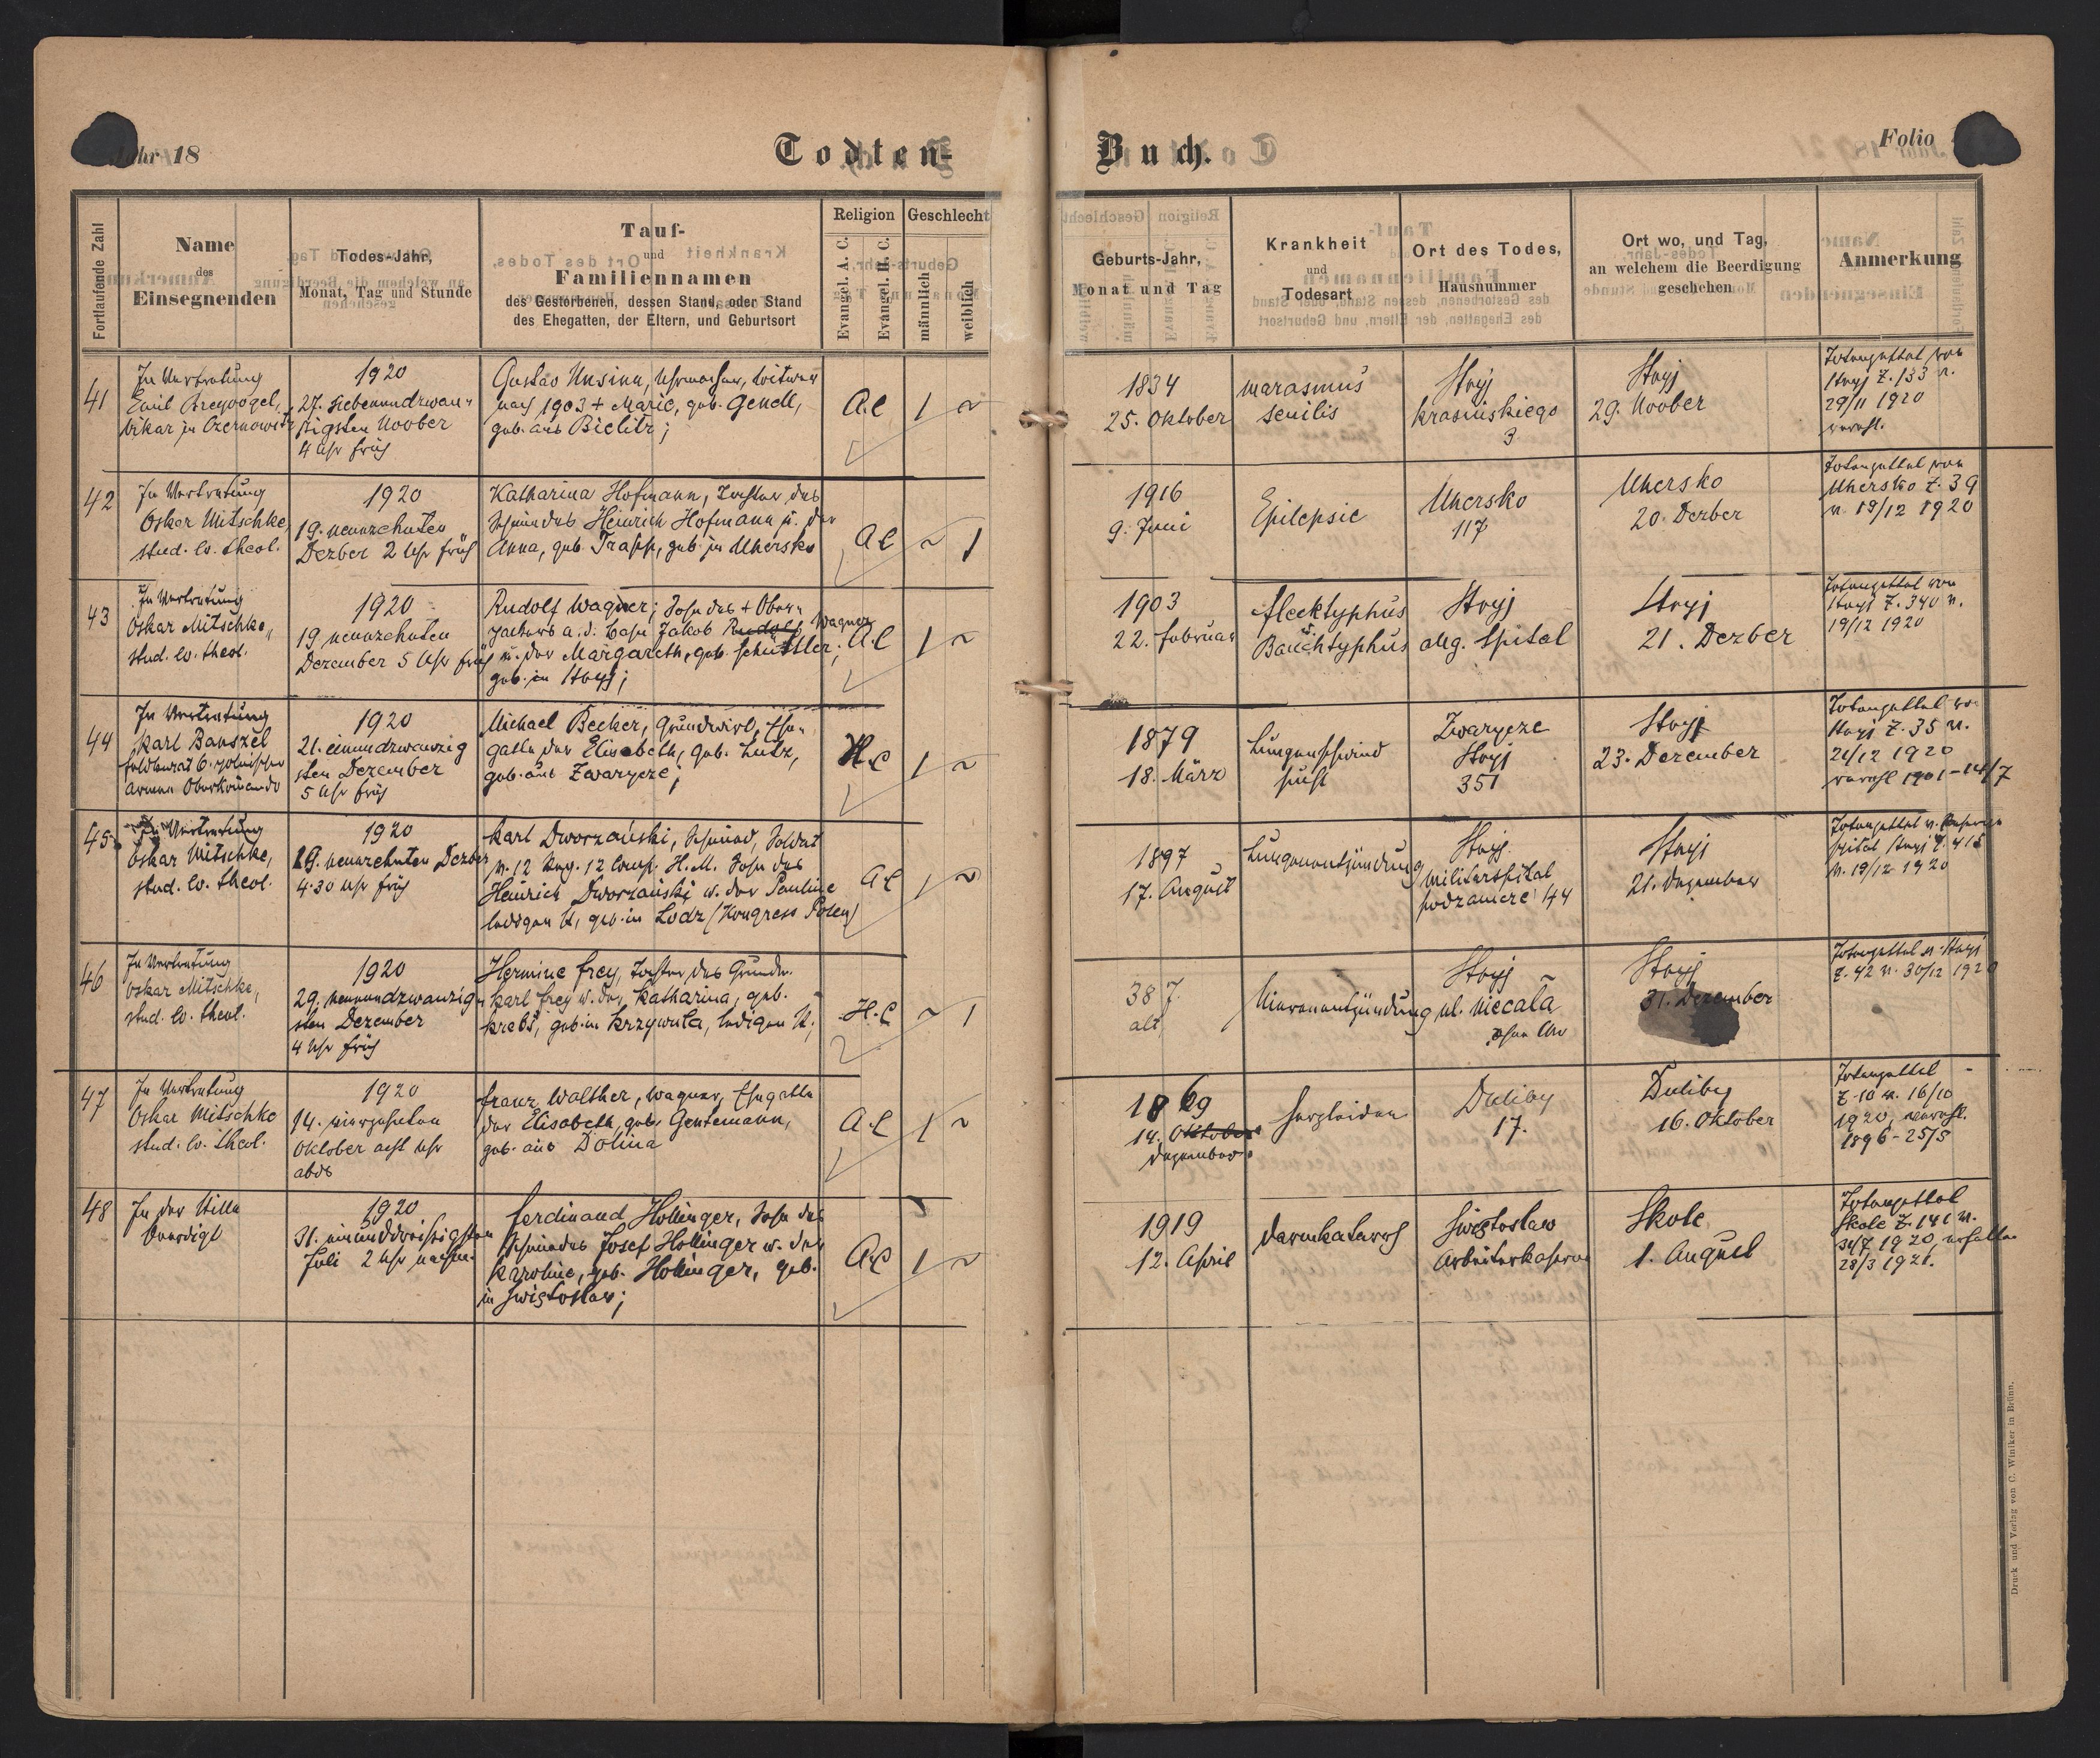 Jahr 18
Todten-
Buch.
Folio
Fortlaufende Zahl
Name
des
Einsegnenden
Todes-Jahr,
Monat, Tag und Stunde
Tauf-
und
Familiennamen
des Gestorbenen, dessen Stand, oder Stand
des Ehegatten, der Eltern, und Geburtsort
Religion
Evangel. A. C.
Evangel. H. C.
Geschlecht
männlich
weiblich
Geburts-Jahr,
Monat und Tag
Krankheit
und
Todesart
Ort des Todes,
Hausnummer
Ort wo, und Tag,
an welchem die Beerdigung
geschehen
Anmerkung
41
In Vertretung
Emil Breyvogel,
Vikar in Czernowitz
1920
27. siebenundzwan-
zigsten Novber
4 Uhr früh
Gustav Unsinn, Uhrmacher, Witwer
nach 1903 + Marie, geb. Gendl,
geb. aus Bielitz;
A.C
1
~
1834
25. Oktober
Marasmus
senilis
Stryj
Krasinskiego
3
Stryj
29. Novber
Totenzettel von
Stryj Z. 133 v.
29/11 1920
verehl.
42
In Vertretung
Oskar Mitschke,
stud. ev. theol.
1920
19. neunzehnten
Dezber 2 Uhr früh
Katharina Hofmann, Tochter des
Schmiedes Heinrich Hofmann u. der
Anna, geb. Trapp, geb. in Uhersko
A.C
~
1
1916
9. Juni
Epilepsie
Uhersko
117
Uhersko
20. Dezber
Totenzettel von
Uhersko Z. 39
v. 19/12 1920
43
In Vertretung
Oskar Mitschke,
stud. ev. theol.
1920
19 neunzehnten
Dezember 5 Uhr früh
Rudolf Wagner; Sohn des + Ober-
a. d. Bahn Jakob Rudolf Wagner
u. der Margareth, geb. Schüttler;
geb. in Stryj;
A.C
1
~
1903
22. Februar
Flecktyphus
u.
Bauchtyphus
Stryj
allg. Spital
Stryj
21. Dezber
Totenzettel von
Stryj Z. 340 v.
19/12 1920
44
In Vertretung
Karl Banszel
Feldkurat 6. polnischen
Armee Oberkomando
1920
21. einundzwanzig
sten Dezember
5 Uhr früh
Michael Becker, Grundwirt, Ehe-
gatte der Elisabeth, geb. Lutz,
geb. aus Zwarycze;
H.C
1
~
1879
18. März
Lungenschwind
sucht
Zwarycze
Stryj
351
Stryj
23. Dezember
Totenzettel von
Stryj Z. 35 v.
21/12 1920
verehl 1901-14/7
45
In Vertretung
Oskar Mitschke,
stud. ev. theol.
1920
19. neunzehnten Dezber
4.30 Uhr früh
Karl Dworzański, Schmied, Soldat
v. 12 Reg. 12 Comp. H.M. Sohn des
Heinrich Dworzański u. der Pauline
ledigen St, geb. in Lodz (Kongress Polen)
A.C
1
~
1897
17. August
Lungenentzündung
Stryj
Militärspital
podzamcze 144
Stryj
21. Dezember
Totenzettel v.
spital Stryj Z. 415
v. 19/12 1920
46
In Vertretung
Oskar Mitschke,
stud. ev. theol.
1920
29. neunundzwanzig-
sten Dezember
4 Uhr früh
Hermine Frey, Tochter des Grundw.
Karl Frey u. der Katharina, geb.
Krebs, geb. in Krzywula, ledigen St;
H.C
~
1
38 J.
alt
Nierenentzündung
Stryj
ul. Niecała
ohne Nr
Stryj
31. Dezember
Totenzettel v. Stryj
Z. 42 v. 30/12 1920
47
In Vertretung
Oskar Mitschke
stud. ev. theol.
1920
14. vierzehnten
Oktober acht Uhr
abds
Franz Walther, Wagner, Ehegatte
der Elisabeth, geb. Gentemann,
geb. aus Dolina
A.C
1
~
1869
14. Oktober
Dezember
Herzleiden
Duliby
17.
Duliby
16. Oktober
Totenzettel
Z. 10 v. 16/10
1920, verehl.
1896-25/5
48
In der Stille
beerdigt
1920
31. einunddreissigsten
Juli 2 Uhr nachm.
Ferdinand Hollinger, Sohn des
Schmiedes Josef Hollinger u. der
Karoline, geb. Hollinger, geb.
in Swigtoslaw;
A.C
1
~
1919
12. April
Darmkatarrh
Swigtoslaw
Arbeiterkaserne
Skole
1. August
Totenzettel
Skole Z. 141 v.
31/7 1920, erhalten
28/3 1921.
Druck und Verlag von C. Winiker in Brünn.